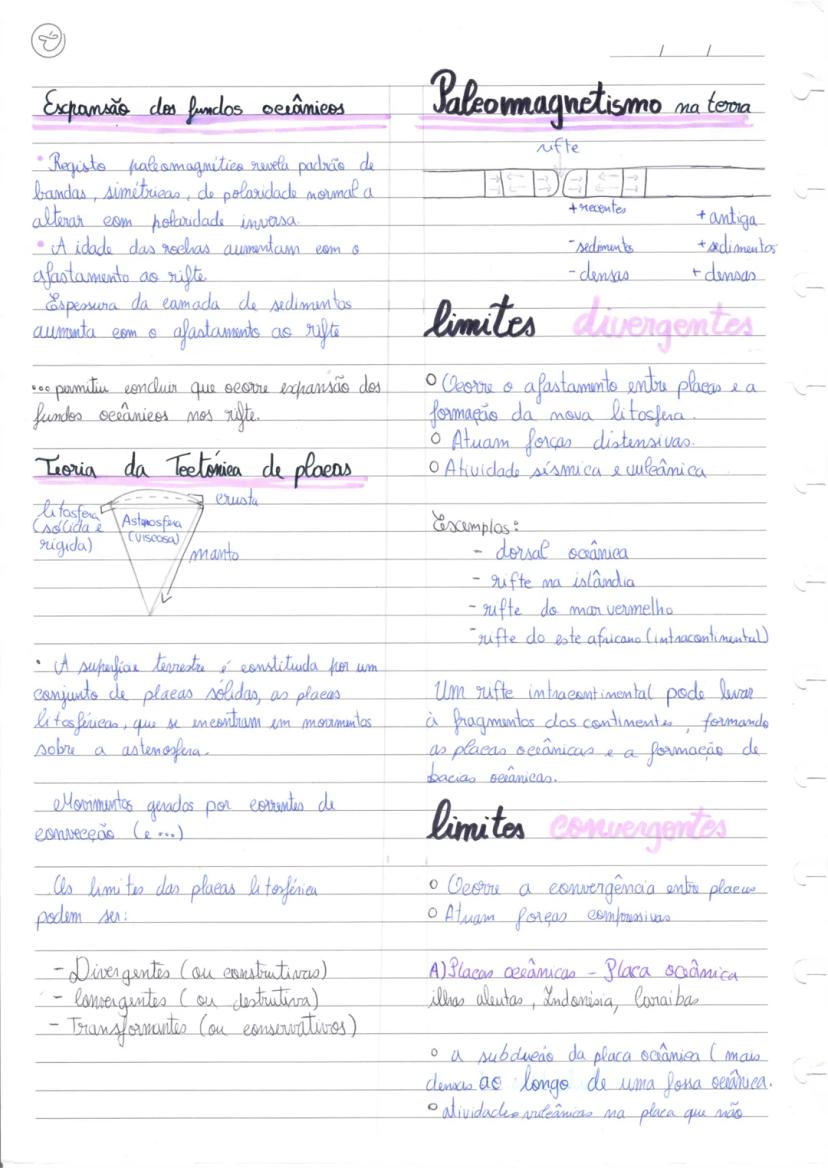 Expansão dos fundos oceânicos
• Registo paleomagnético revela padrão de
bandas, simétricas, de polaridade normal a
alterar com polaridade inversa.
• A idade das rochas aumentam com o
afastamento ao rifte
Espessura da camada de sedimentos
aumenta com o afastamento ao rifte
... permitiu concluir que ocorre expansão dos
fundos oceânicos nos rifte.
Teoria da Tectónica de placas
litosfera
(sólida e
rigida)
Astenosfera
(viscosa)
crusta
manto
• A superfície terrestre é constituida por um
conjunto de placas sólidas, as placas
litosféricas, que se encontram em movimentos
sobre a astenosfera.
Movimentos gerados por correntes de
convecção (e ...)
Os limites das placas litosférica
podem ser:
- Divergentes (ou construtivas)
- Convergentes (ou destrutiva)
- Transformantes (ou conservativos)
Paleomagnetismo na terra
rifte
+ recentes
- sedimento
- densas
+ antiga
+ sedimentos
+ densas
limites divergentes
o Ocorre o afastamento entre placas e a
formação da nova litosfera.
o Atuam forças distensivas.
o Atividade sísmica e vulcânica
Excemplos:
- dorsal oceânica
- rifte na islândia
- rifte do mar vermelho
- rifte do este africano (intracontimental)
Um rifte intracontimental pode levar
à fragmentos dos continentes, formando
as placas oceânicas e a formação de
bacias oceânicas.
limites convergentes
o Ocorre a convergência entre placas
o Atuam forças compressivas
A) Placas oceânicas - Placa oceânica
ilhas aleutas, Indonésia, Caraibas
o a subducão da placa oceânica (mais
densas ao longo de uma fossa oceânica.
o atividades vulcânicas na placa que não